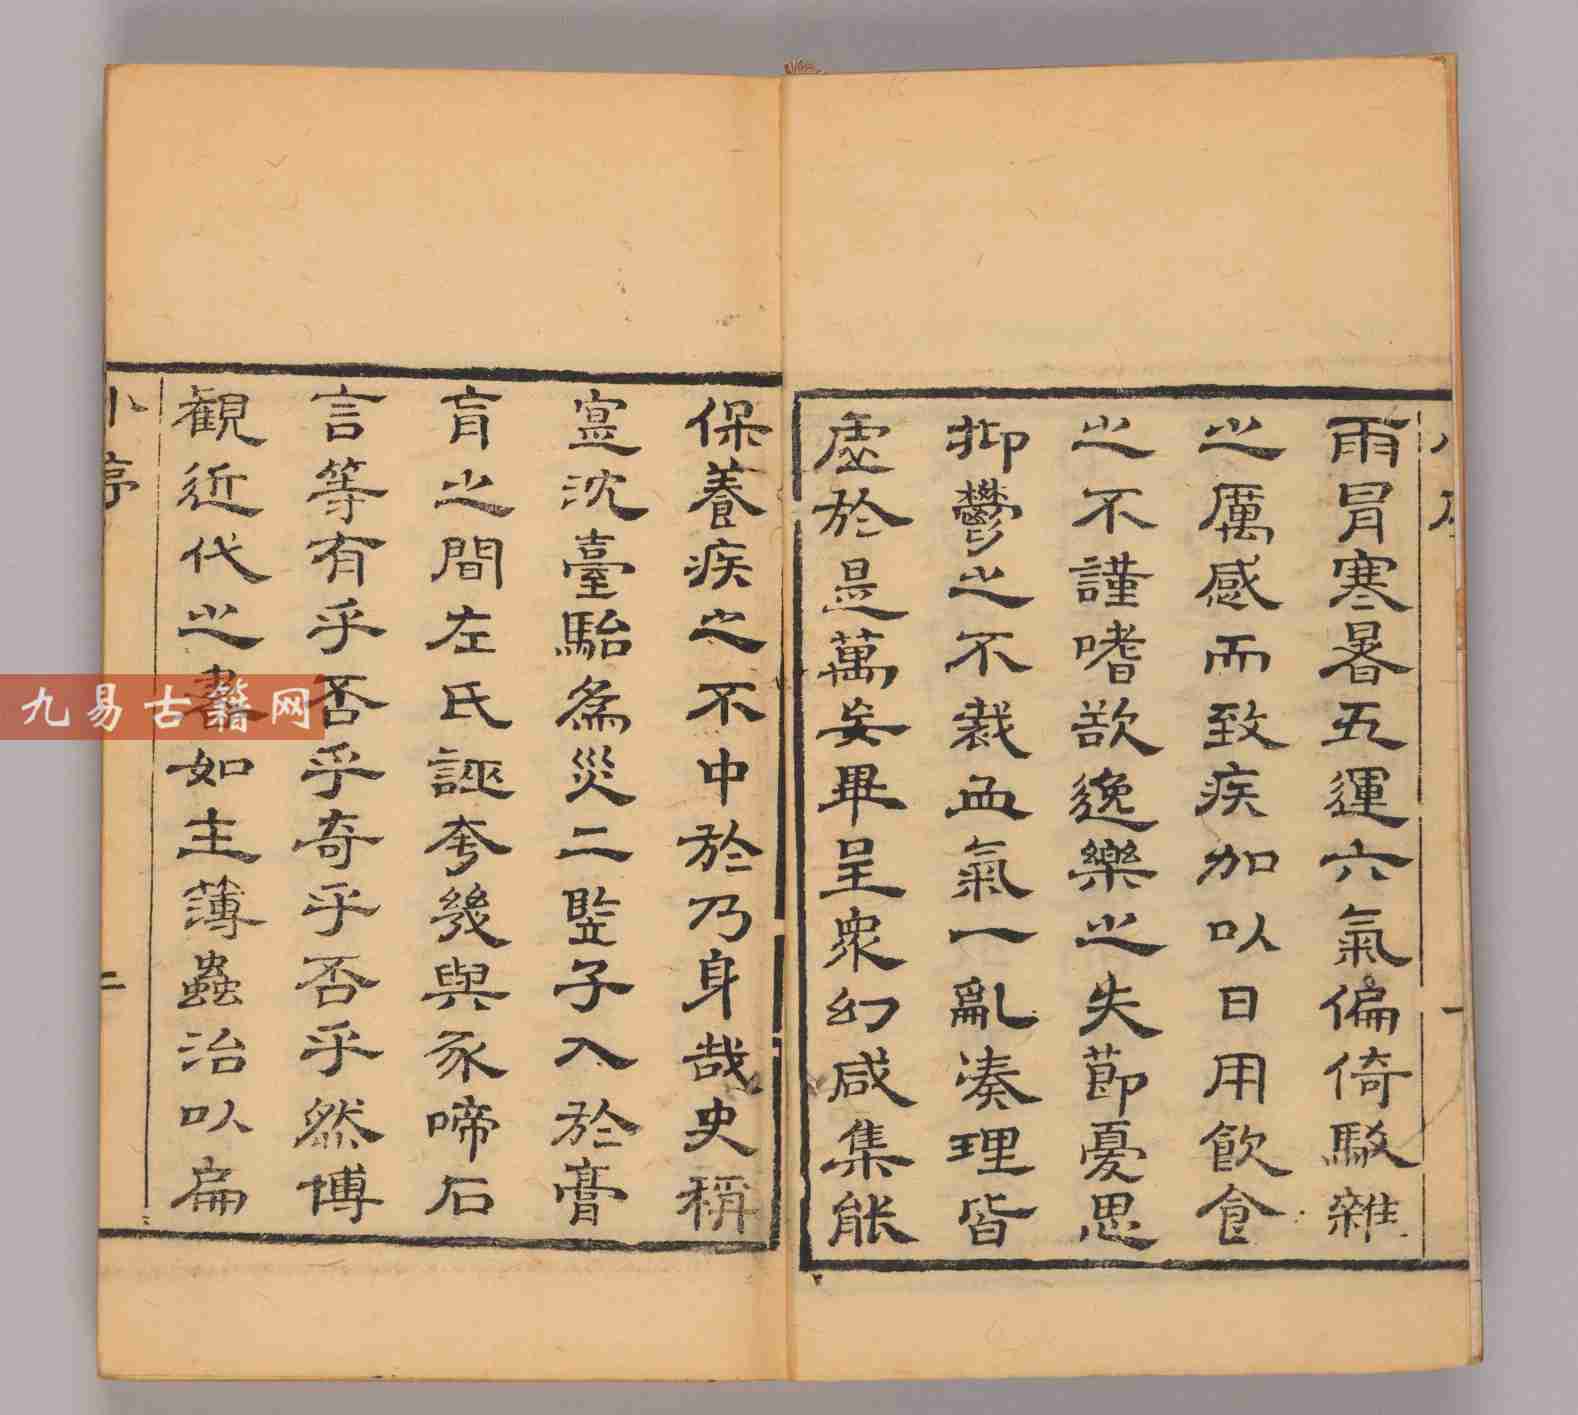 雨冒寒暑五運六氣偏倚駁雜
之厲感而致疾加以日用飲食
之不謹嗜欲逸樂之失節憂思
抑鬱之不裁血氣一亂湊理皆
虛於是萬妄畢呈衆幻咸集能
保養疾之不中於乃身哉史稱
寔沈臺駘為災二竪子入於膏
肓之間左氏誣夸幾與豕啼石
言等有乎否乎奇乎否乎然博
觀近代之書如主薄蟲治以扁
九易古籍网